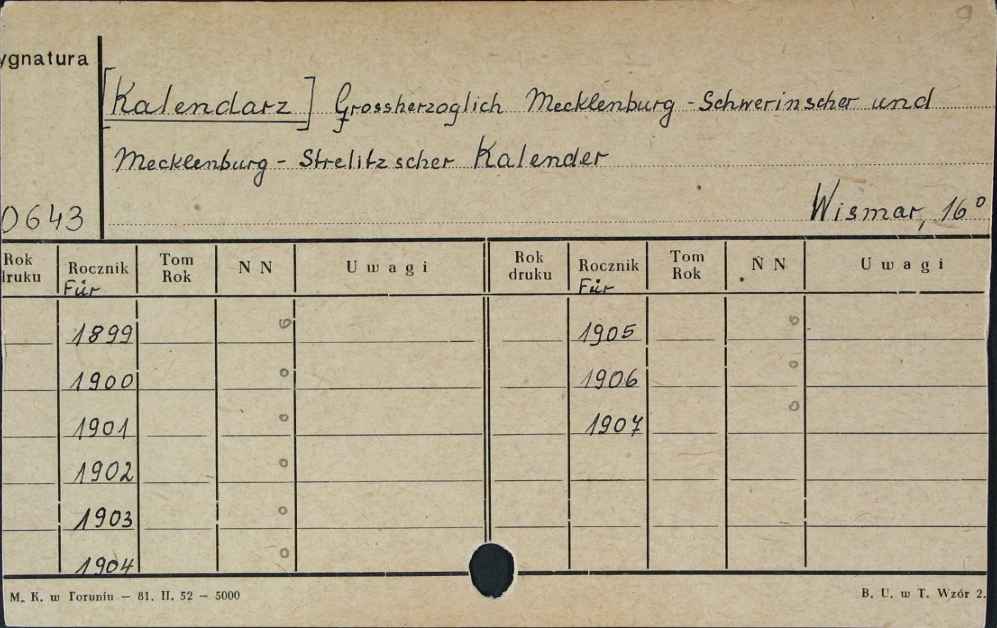 9
ygnatura
[Kalendarz] Grossherzoglich Mecklenburg - Schwerinscher und
Mecklenburg - Strelitzscher Kalender
0643
Wismar, 16°
Rok druku Rocznik Für Tom Rok N N Uwagi Rok druku Rocznik Für Tom Rok N N Uwagi
1899 o 1905 o
1900 o 1906 o
1901 o 1907 o
1902 o
1903 o
1904 o
M. K. w Toruniu — 81. II. 52 — 5000
B. U. w T. Wzór 2.